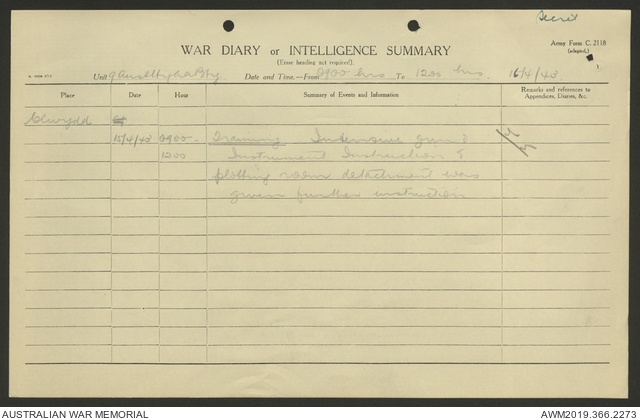 Secret
Army Form C. 2118
(adapted.)
WAR DIARY or INTELLIGENCE SUMMARY
(Erase heading not required).
Unit Date and Time.—From 0900 hrs To 1200 hrs. 16/4/43
Place Date Hour Summary of Events and Information Remarks and references to Appendices, Diaries, &c.
15/4/43 0900- Training Intensive gun &
1200 Instrument Instruction &
plotting room detachment was
given further instruction
AUSTRALIAN WAR MEMORIAL AWM2019.366.2273